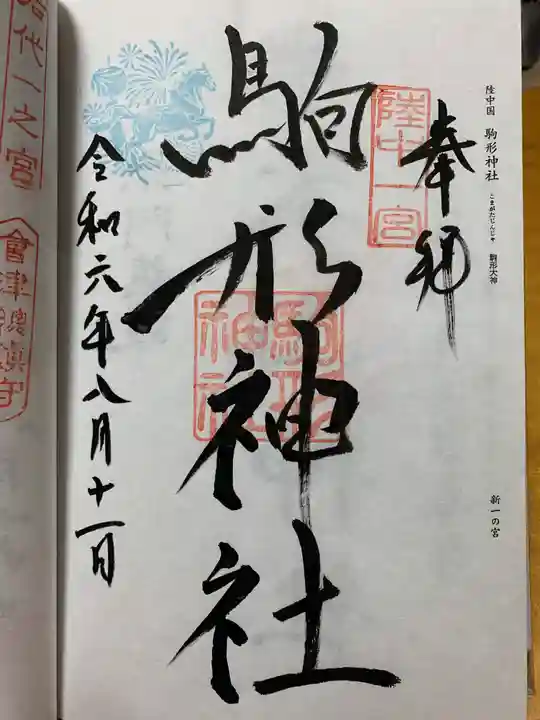 陸中国 駒形神社 駒形大神
こまがたじんじゃ
新一の宮
奉拝
陸中一宮
駒形神社
駒形神社
令和六年八月十一日
岩代一之宮
會津總鎮守